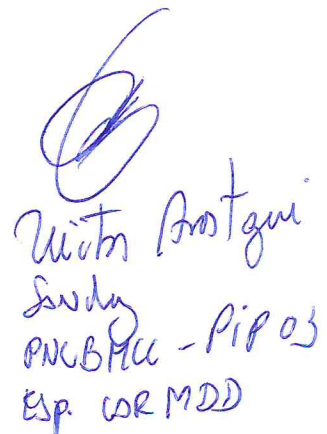 Victor Arostegui
PNCBMCC - PiP 03
Esp. COR MDD